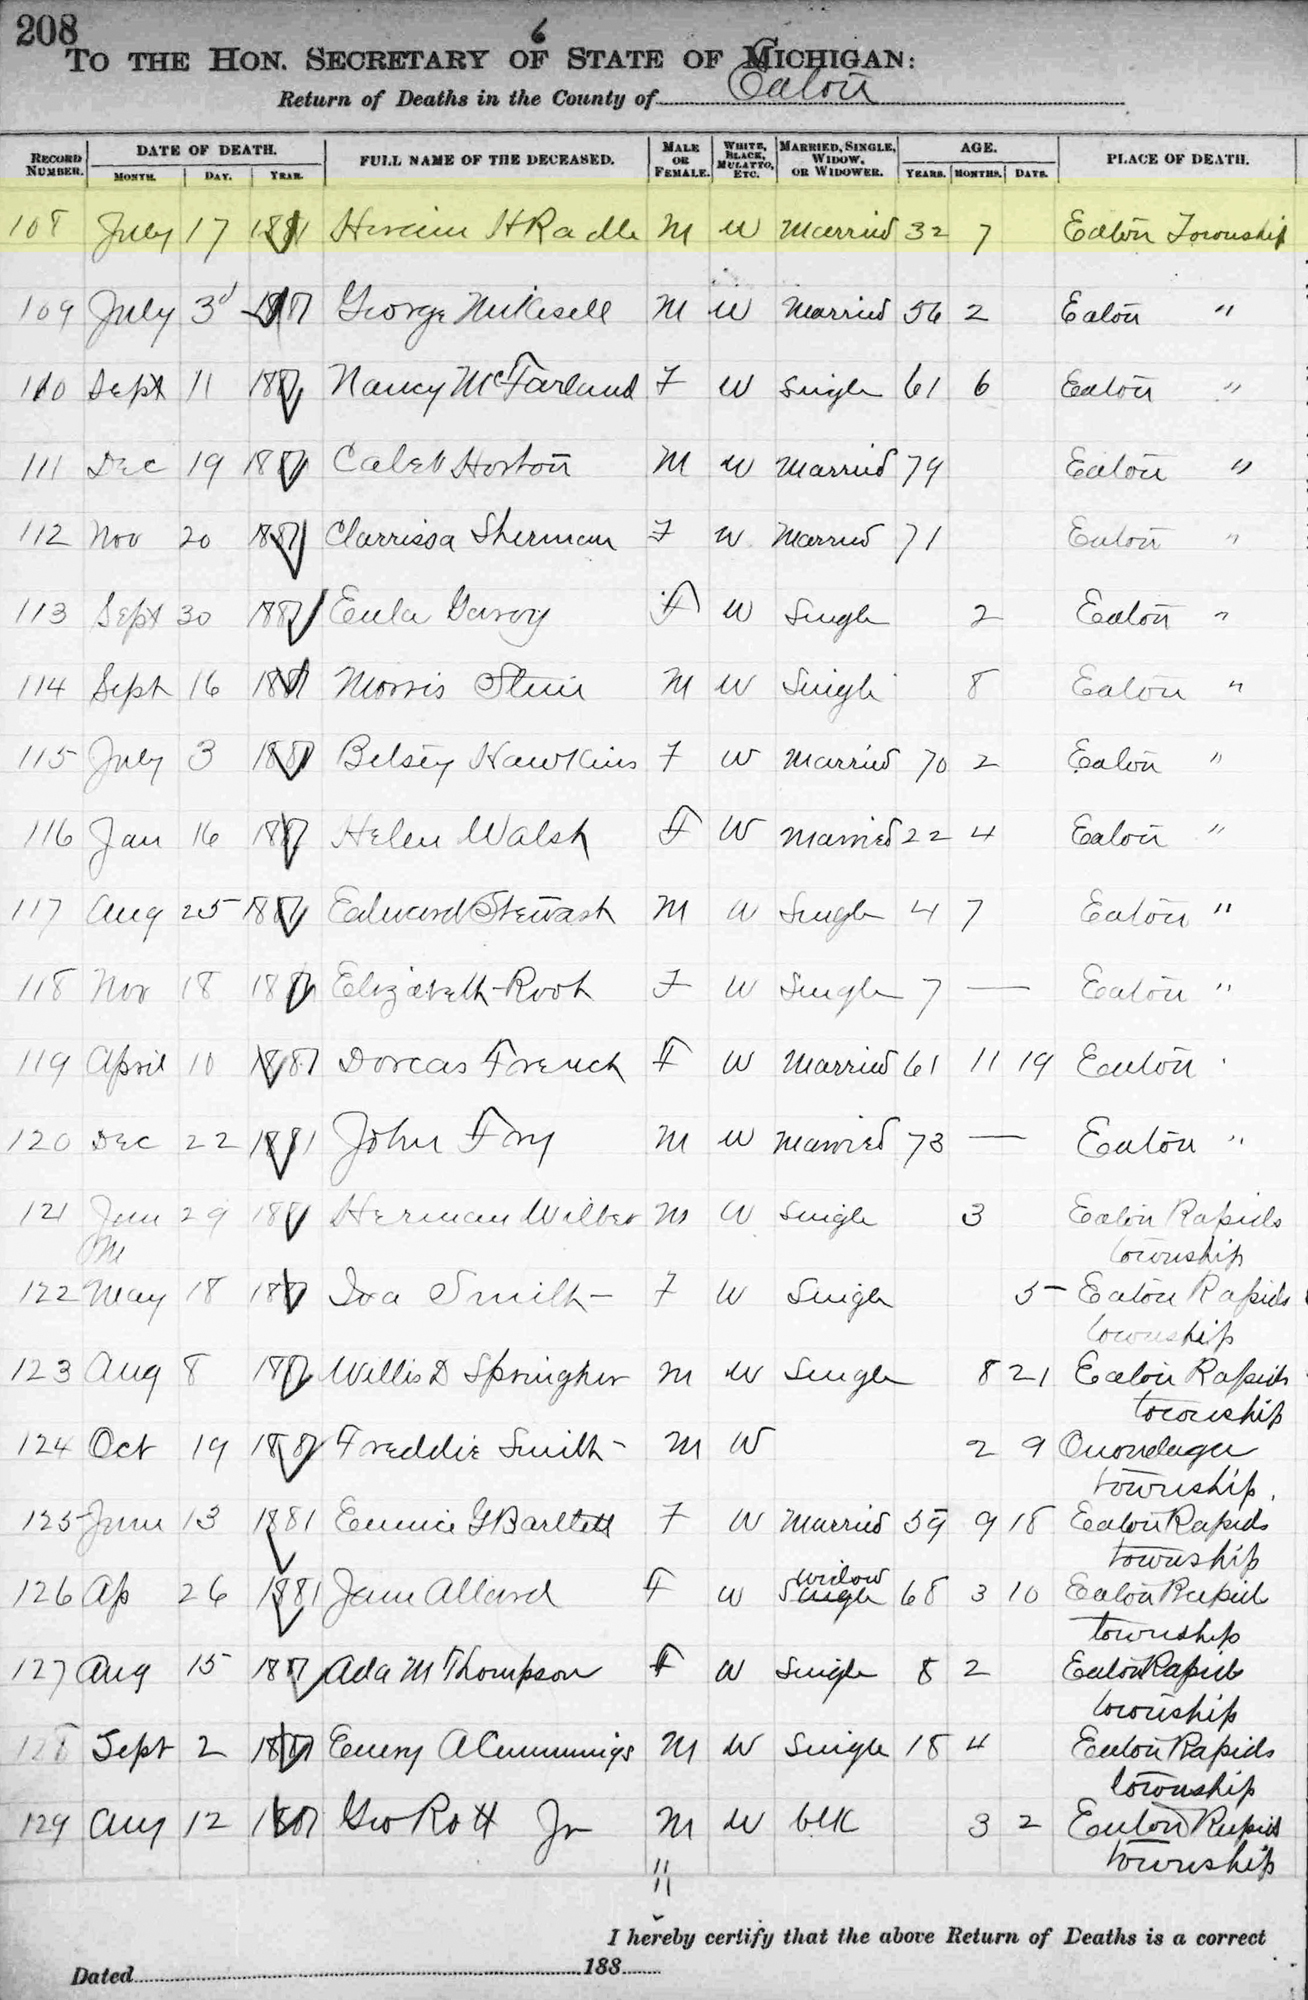 208
6
TO THE HON. SECRETARY OF STATE OF MICHIGAN:
Return of Deaths in the County of Eaton
RECORD NUMBER. DATE OF DEATH. MONTH. DAY. YEAR. FULL NAME OF THE DECEASED. MALE OR FEMALE. WHITE, BLACK, MULATTO, ETC. MARRIED, SINGLE, WIDOW, OR WIDOWER. AGE. YEARS. MONTHS. DAYS. PLACE OF DEATH.
108 July 17 1881 Hiram H Radle M W Married 32 7 Eaton Township
109 July 3d 1881 George Mikesell M W Married 56 2 Eaton "
110 Sept 11 1881 Nancy McFarland F W Single 61 6 Eaton "
111 Dec 19 1881 Caleb Horton M W Married 79 Eaton "
112 Nov 20 1881 Clarrissa Sherman F W Married 71 Eaton "
113 Sept 30 1881 Eula F W Single 2 Eaton "
114 Sept 16 1881 Morris M W Single 8 Eaton "
115 July 3 1881 Betsey Hawkins F W Married 70 2 Eaton "
116 Jan 16 1881 Helen Walsh F W Married 22 4 Eaton "
117 Aug 25 1881 Edward Stewart M W Single 4 7 Eaton "
118 Nov 18 1881 Elizabeth Root F W Single 7 — Eaton "
119 April 10 1881 Dorcas French F W Married 61 11 19 Eaton "
120 Dec 22 1881 John Fry M W Married 73 — Eaton "
121 29 1881 Herman Wilber M W Single 3 Eaton Rapids
township
122 May 18 1881 Smith F W Single 5 Eaton Rapids
township
123 Aug 8 1881 Willis D Springher M W Single 8 21 Eaton Rapids
township
124 Oct 19 1881 Freddie Smith M W 2 9 Onondaga
township.
125 June 13 1881 Eunice G Bartlett F W Married 59 9 18 Eaton Rapids
township
widow
126 Ap 26 1881 Jane Allard F W Single 68 3 10 Eaton Rapids
township
127 Aug 15 1881 Ada M Thompson F W Single 8 2 Eaton Rapids
township
128 Sept 2 1881 Emery A Cummings M W Single 18 4 Eaton Rapids
township
129 Aug 12 1881 Geo Rott Jr M W 3 2 Eaton Rapids
township
I hereby certify that the above Return of Deaths is a correct
Dated 188